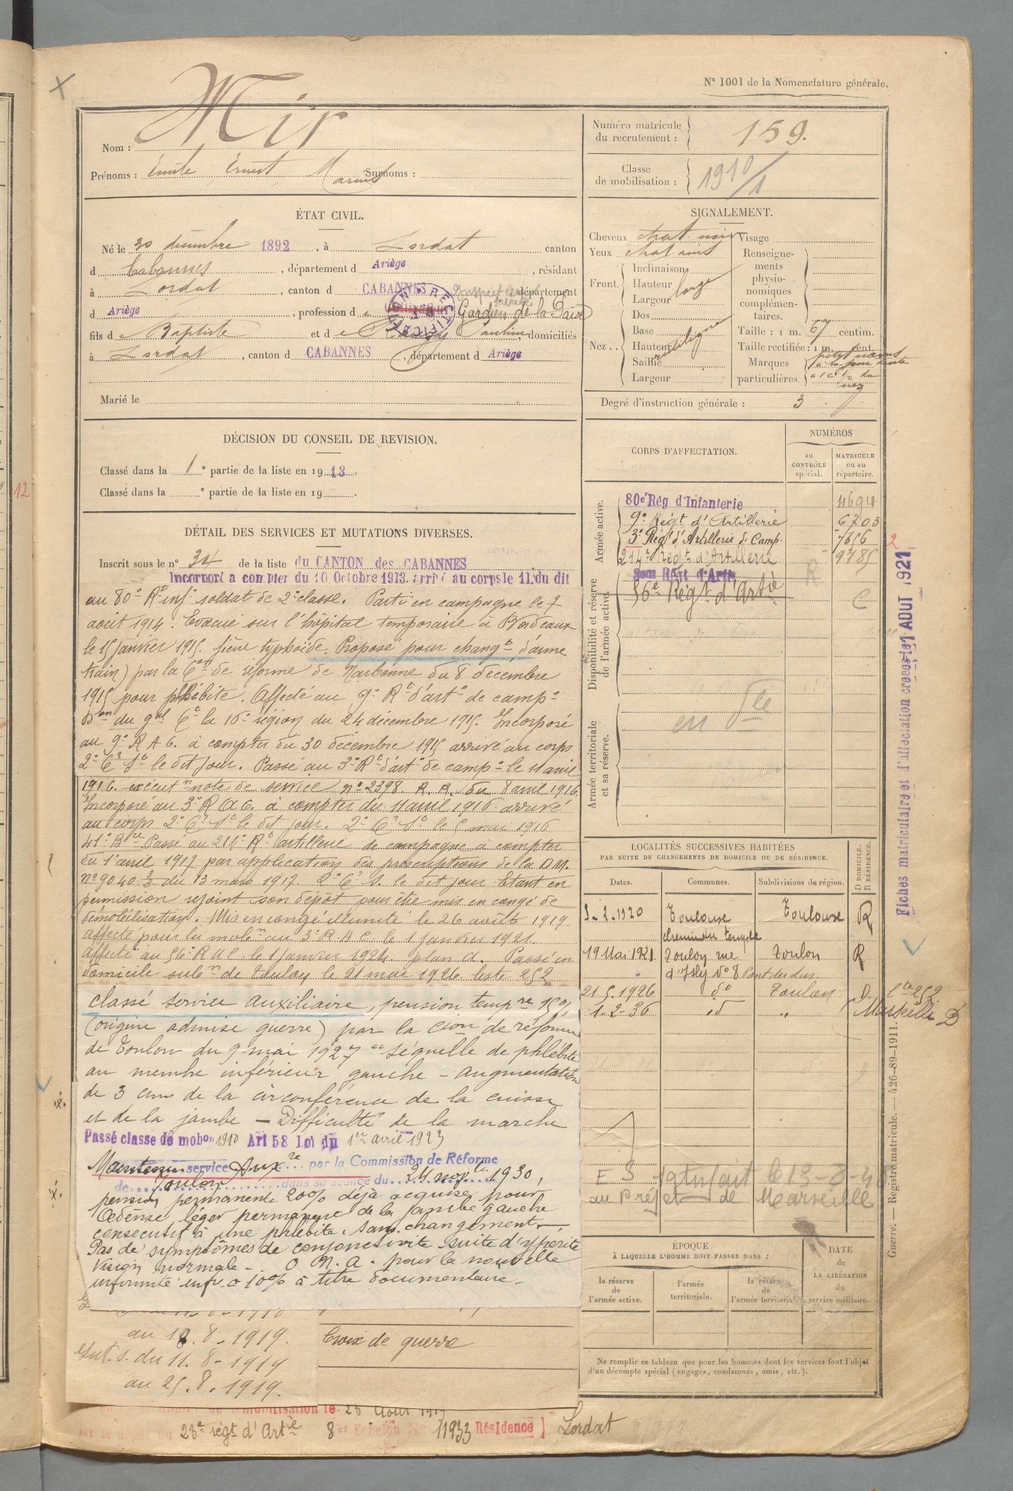 N° 1001 de la Nomenclature générale.
Nom : Mir
Prénoms : Emile Ernest Marius Surnoms :
Numéro matricule du recrutement : 159.
Classe de mobilisation : 1910/1
ÉTAT CIVIL.
Né le 30 décembre 1892, à Lordat canton
d Cabannes, département d Ariège, résidant
à Lordat, canton d CABANNES, département
d Ariège, profession de Gardien de la Paix
fils de Baptiste et de Pauline, domiciliés
à Lordat, canton d CABANNES, département d Ariège
Marié le
RECTIFICATION
SIGNALEMENT.
Cheveux chat. noir
Yeux chat
Front. Inclinaison
Hauteur
Largeur large
Nez.. Dos
Base
Hauteur rectiligne
Saillie
Largeur
Visage
Renseignements physionomiques complémentaires.
Taille : 1 m. 67 centim.
Taille rectifiée : 1 m. cent.
Marques particulières.
Degré d'instruction générale : 3
DÉCISION DU CONSEIL DE REVISION.
Classé dans la 1e partie de la liste en 1913.
Classé dans la e partie de la liste en 19
CORPS D'AFFECTATION.
NUMÉROS
au CONTRÔLE spécial.
MATRICULE ou au répertoire.
Armée active.
80e Rég d'Infanterie 4694
9e Régt d'Artillerie 6703
3e Régt d'Artillerie de Camp. 7656
214e Régt d'Artillerie 9785
56e Régt d'Artie
Disponibilité et réserve de l'armée active.
Armée territoriale et sa réserve.
DÉTAIL DES SERVICES ET MUTATIONS DIVERSES.
Inscrit sous le n° 34 de la liste du CANTON DES CABANNES
Incorporé à compter du 10 Octobre 1913. arrivé au corps le 11. du dit
au 80e R. inf. soldat de 2e classe. Parti en campagne le 7
août 1914. Evacué sur l'hôpital temporaire à Bordeaux
le 15 janvier 1915. fièvre typhoïde. Proposé pour changt d'arme
train) par la Con de réforme de Narbonne du 8 décembre
1915 pour phlébite. Affecté au 9e Rt d'arte de campe
Don du gal Ct la 16e région du 24 décembre 1915. Incorporé
au 9e R A C. à compter du 30 décembre 1915 arrivé au corps
le dit jour. Passé au 3e Rt d'art de campe le 11 avril
1916. note de service n° 2398. R. R. du 8 avril 1916.
Incorporé au 3e R A C. à compter du 11 avril 1916 arrivé
au corps le dit jour.
Passé au 214e Rt artillerie de campagne à compter
du 1er avril 1917 par application des prescriptions de la D.M.
n° 9040 3/3 du 13 mars 1917. le dit jour Etant en
permission rejoint son dépôt pour être mis en congé de
démobilisation. Mis en congé illimité le 26 août 1919.
Affecté pour la mobon au 3e R A C le 1 janvier 1921.
Affecté au 56e R A C. le 1 janvier 1924. plan A. Passé en
domicile subon de Toulon le 21 mai 1926. liste 252
classé service auxiliaire, pension tempre 10%
(origine admise guerre) par la Cion de réforme
de Toulon du 9 mai 1927 séquelle de phlébite
au membre inférieur gauche - augmentation
de 3 cms de la circonférence de la cuisse
et de la jambe - Difficulté de la marche
Passé classe de mobon 1910 Art 58 Loi du 1er avril 1923
Maintenu service Auxre par la Commission de Réforme
de Toulon dans sa séance du 24 nov. 1930,
pension permanente 20% déjà acquise pour
Œdème léger permanent de la jambe gauche
consécutif à une phlébite, sans changement.
Pas de symptômes de conjonctivite suite d'ypérite
Vision normale. O. N. A. pour la nouvelle
infirmité infre à 10% à titre documentaire.
au 18.8.1919.
Int. s. du 11.8.1919
au 25.8.1919.
Croix de guerre
LOCALITÉS SUCCESSIVES HABITÉES
PAR SUITE DE CHANGEMENTS DE DOMICILE OU DE RÉSIDENCE.
Dates. Communes. Subdivisions de région. D. DOMICILE. R. RÉSIDENCE.
1920 Toulouse Toulouse R
19 Mai 1921. Toulon rue d'Isly N° 8 Toulon R
21.5.1926 do Toulon D.
1.2.36 do " Marseille D
le 13-3-40
au Préfet de Marseille
ÉPOQUE
À LAQUELLE L'HOMME DOIT PASSER DANS :
la réserve de l'armée active.
l'armée territoriale.
la réserve de l'armée territoriale.
DATE DE LA LIBÉRATION du service militaire.
Ne remplir ce tableau que pour les hommes dont les services font l'objet
d'un décompte spécial (engagés, condamnés, omis, etc.).
démobilisation le 26 Août 1919
par le dépôt du 23e régt d'Artie 8e Echelon N° 11933 Résidence } Lordat
Fiches matriculaire et d'affectation créées le 1 AOUT 1921
Guerre. — Registre matricule. — 426-89-1911.